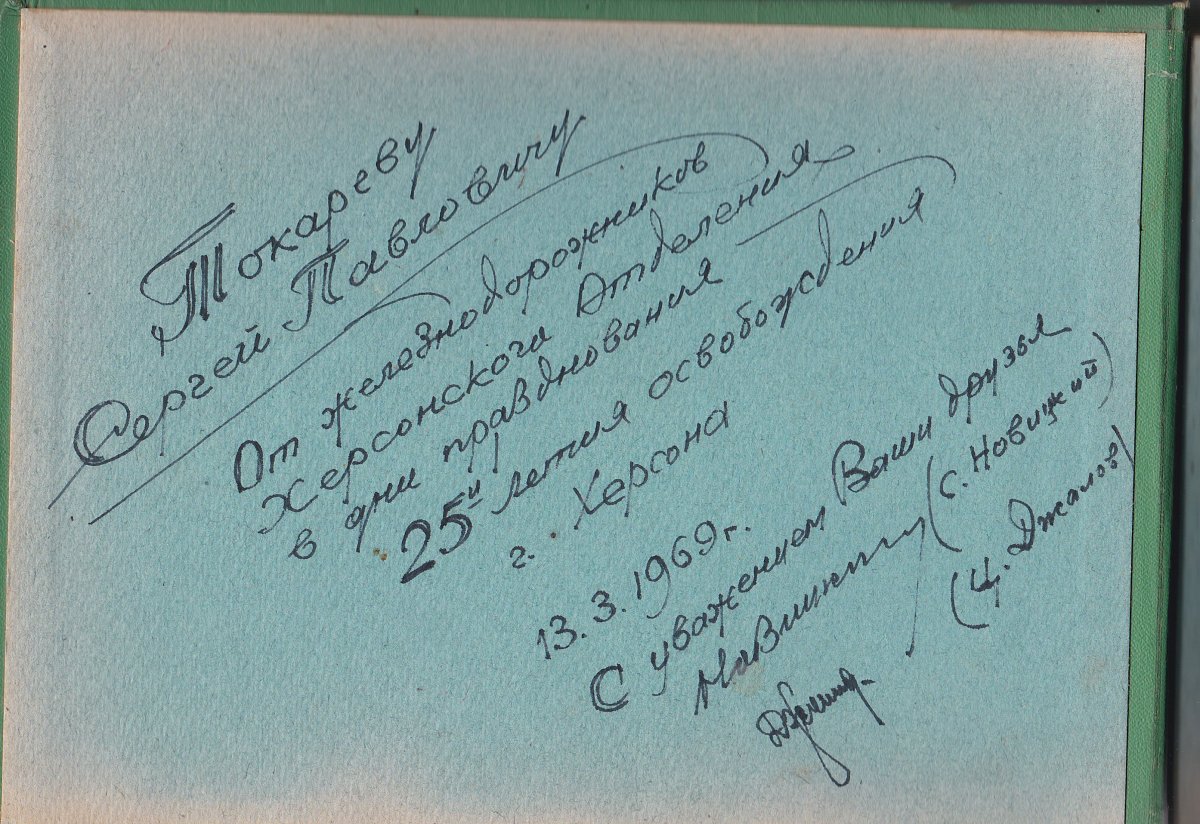 Токареву
Сергей Павловичу
От железнодорожников
Херсонского Отделения
в дни празднования
25и летия освобождения
г. Херсона
13.3.1969г.
С уважением Ваши друзья
(С. Новицкий)
(Ц. Джалов)